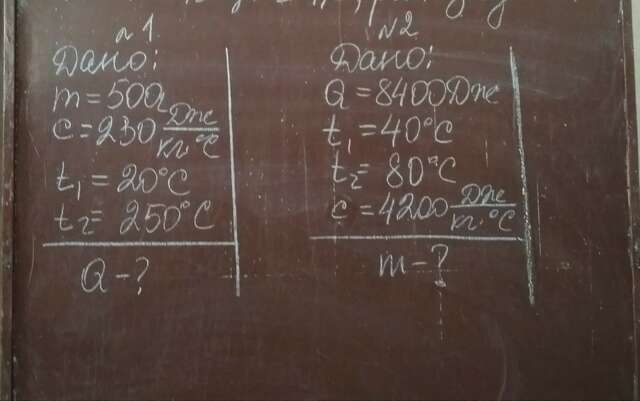 №1
Дано:
m = 500г
c = 230 Дж/кг·°C
t₁ = 20°C
t₂ = 250°C
Q - ?
№2
Дано:
Q = 8400 Дж
t₁ = 40°C
t₂ = 80°C
c = 4200 Дж/кг·°C
m - ?